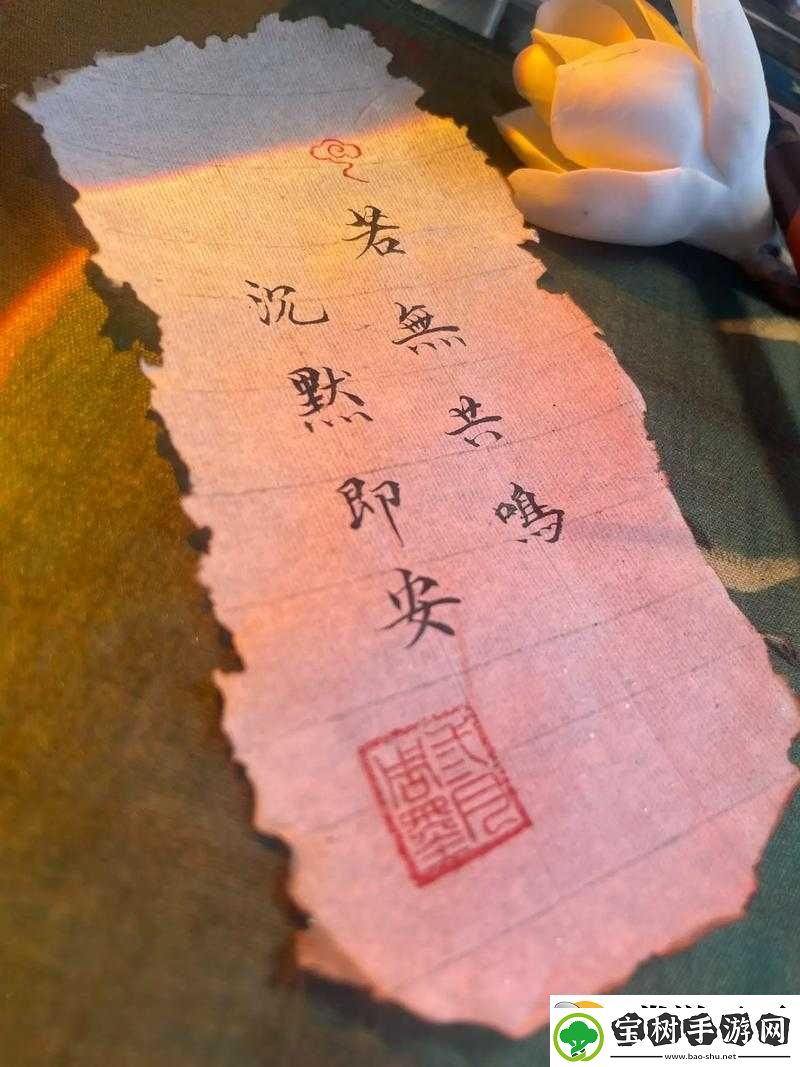 若無共鳴
沉默即安
宝树手游网
www.bao-shu.net